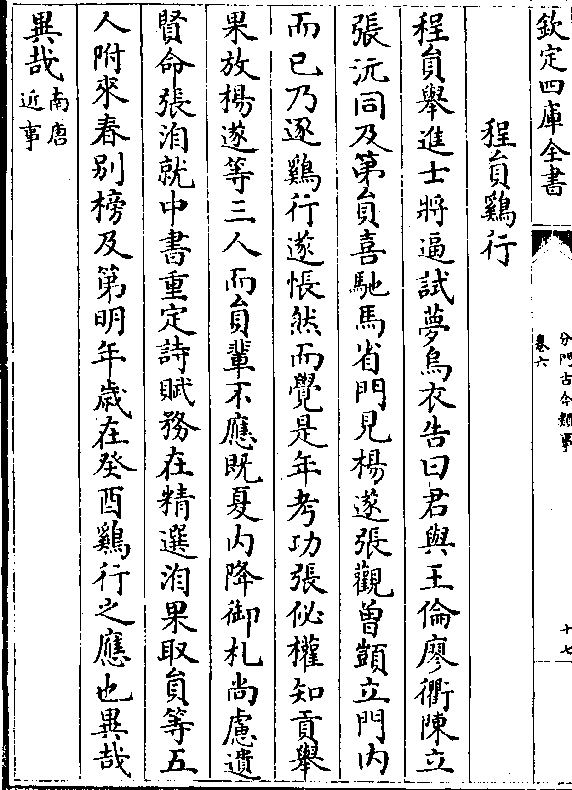 欽定四庫全書
分門古今類事
卷六
十七
程員鷄行
程員舉進士將逼試夢烏衣告曰君與王倫廖衢陳立
張沅同及第員喜馳馬省門見楊遂張觀曾顗立門内
而已乃逐鷄行遂悵然而覺是年考功張佖權知貢舉
果放楊遂等三人而員輩不應既夏内降御札尚慮遺
賢命張洎就中書重定詩賦務在精選洎果取員等五
人附來春别榜及第明年歲在癸酉鷄行之應也異哉
異哉南唐
近事